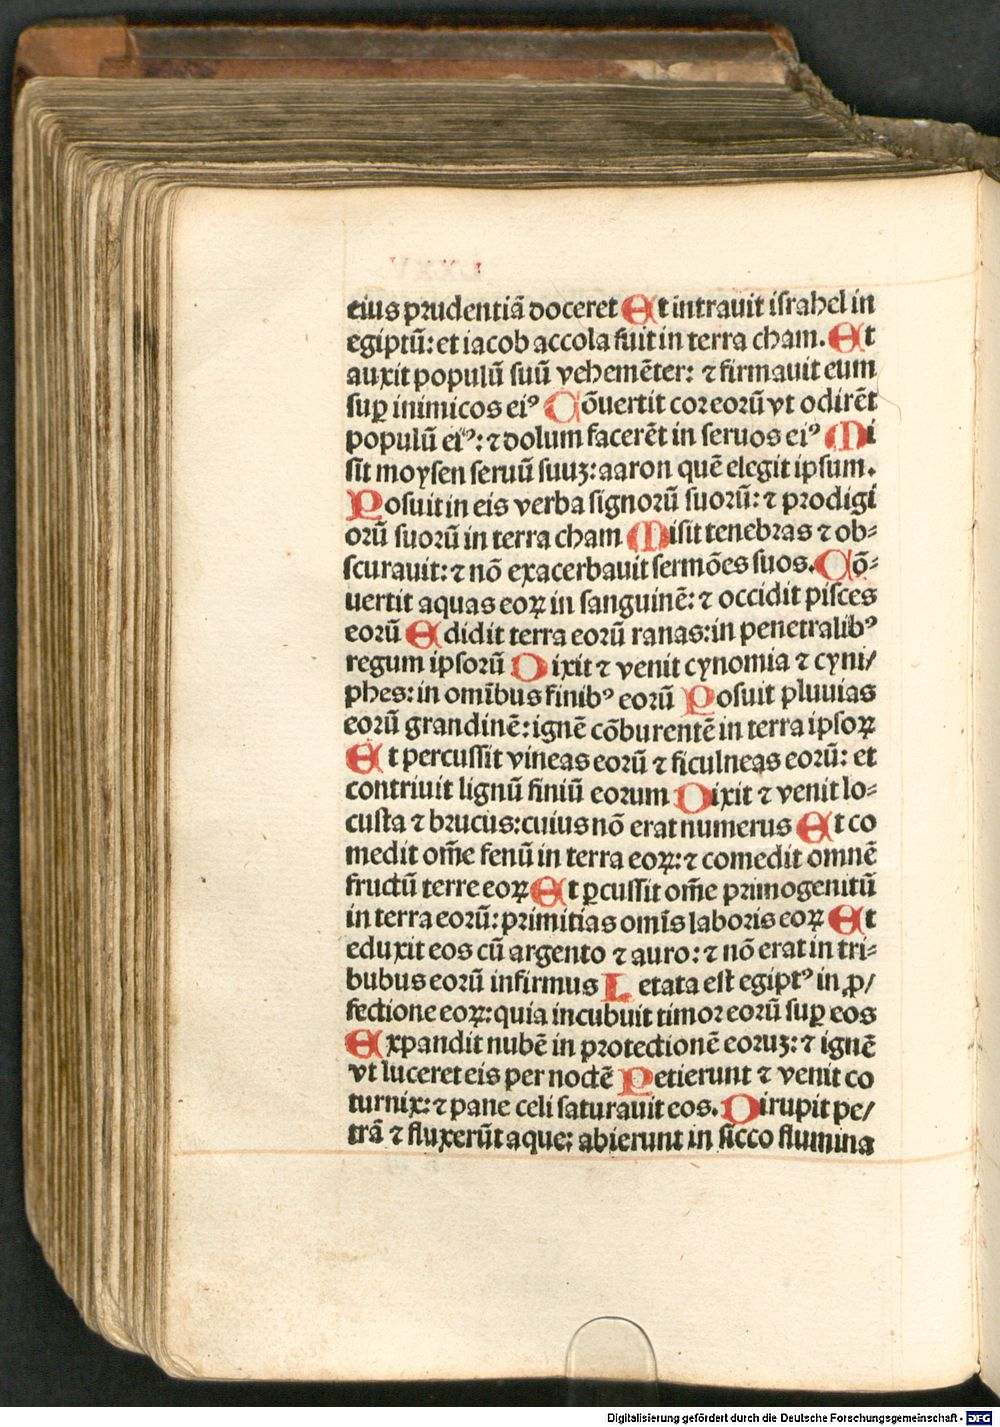 eius prudentiā doceret Et intrauit israhel in
egiptū: et iacob accola fuit in terra cham. Et
auxit populū suū vehemēter: ⁊ firmauit eum
sup̱ inimicos eiꝰ Cōuertit cor eorū vt odirēt
populū eiꝰ: ⁊ dolum facerēt in seruos eiꝰ Mi
sit moysen seruū suuꝫ: aaron quē elegit ipsum.
Posuit in eis verba signorū suorū: ⁊ prodigi
orū suorū in terra cham Misit tenebras ⁊ ob⸗
scurauit: ⁊ nō exacerbauit sermōes suos. Cō⸗
uertit aquas eoꝝ in sanguinē: ⁊ occidit pisces
eorū Edidit terra eorū ranas: in penetralibꝰ
regum ipsorū Dixit ⁊ venit cynomia ⁊ cyni/
phes: in om̄ibus finibꝰ eorū Posuit pluuias
eorū grandinē: ignē cōburentē in terra ipsoꝝ
Et percussit vineas eorū ⁊ ficulneas eorū: et
contriuit lignū finiū eorum Dixit ⁊ venit lo⸗
custa ⁊ brucus: cuius nō erat numerus Et co
medit om̄e fenū in terra eoꝝ: ⁊ comedit omnē
fructū terre eoꝝ Et ꝑcussit om̄e primogenitū
in terra eorū: primitias om̄is laboris eoꝝ Et
eduxit eos cū argento ⁊ auro: ⁊ nō erat in tri⸗
bubus eorū infirmus Letata est egiptꝰ in ꝓ/
fectione eoꝝ: quia incubuit timor eorū sup̱ eos
Expandit nubē in protectionē eoruꝫ: ⁊ ignē
vt luceret eis per noctē Petierunt ⁊ venit co
turnix: ⁊ pane celi saturauit eos. Dirupit pe/
trā ⁊ fluxerūt aque: abierunt in sicco flumina
Digitalisierung gefördert durch die Deutsche Forschungsgemeinschaft - DFG